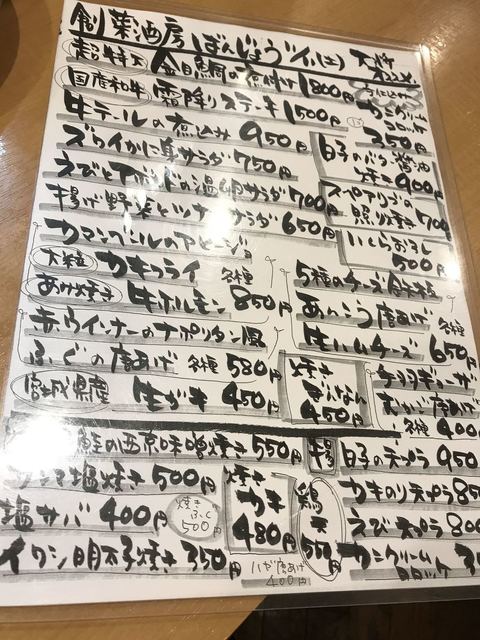 創菜酒房 ばんじょうツイ(土)
超特大 金目鯛の煮付け 1800円
国産和牛 霜降りステーキ 1500円
牛テールの煮込み 950円
ズワイかに身サラダ 750円
えびとアボカドの温卵サラダ 700円
揚げ野菜とツナサラダ 650円
カマンベールのアヒージョ
大粒 カキフライ 各種
あみ焼き 牛ホルモン 850円
赤ウインナーのナポリタン風
ふぐの唐あげ 各種 580円
宮城県産 生がき 450円
鮭の西京味噌焼き 550円
サンマ塩焼き 500円
塩サバ 400円
イワシ明太子焼き 350円
カニクリーム
コロッケ
350円
白子のバター醤油
焼き 900円
スペアリブの
照り焼き 700
いくらおろし
500円
5種のチーズ
あんこう唐あげ 各種
生ハムチーズ 650円
焼き
450円
チーズギョーザ
唐あげ
各種 400
焼き
カキ
480円
焼き
ふぐ
500円
鶏
天
550
白子の天プラ 950
カキのり天プラ 850
えび天プラ 800
カニクリーム
唐あげ
400円